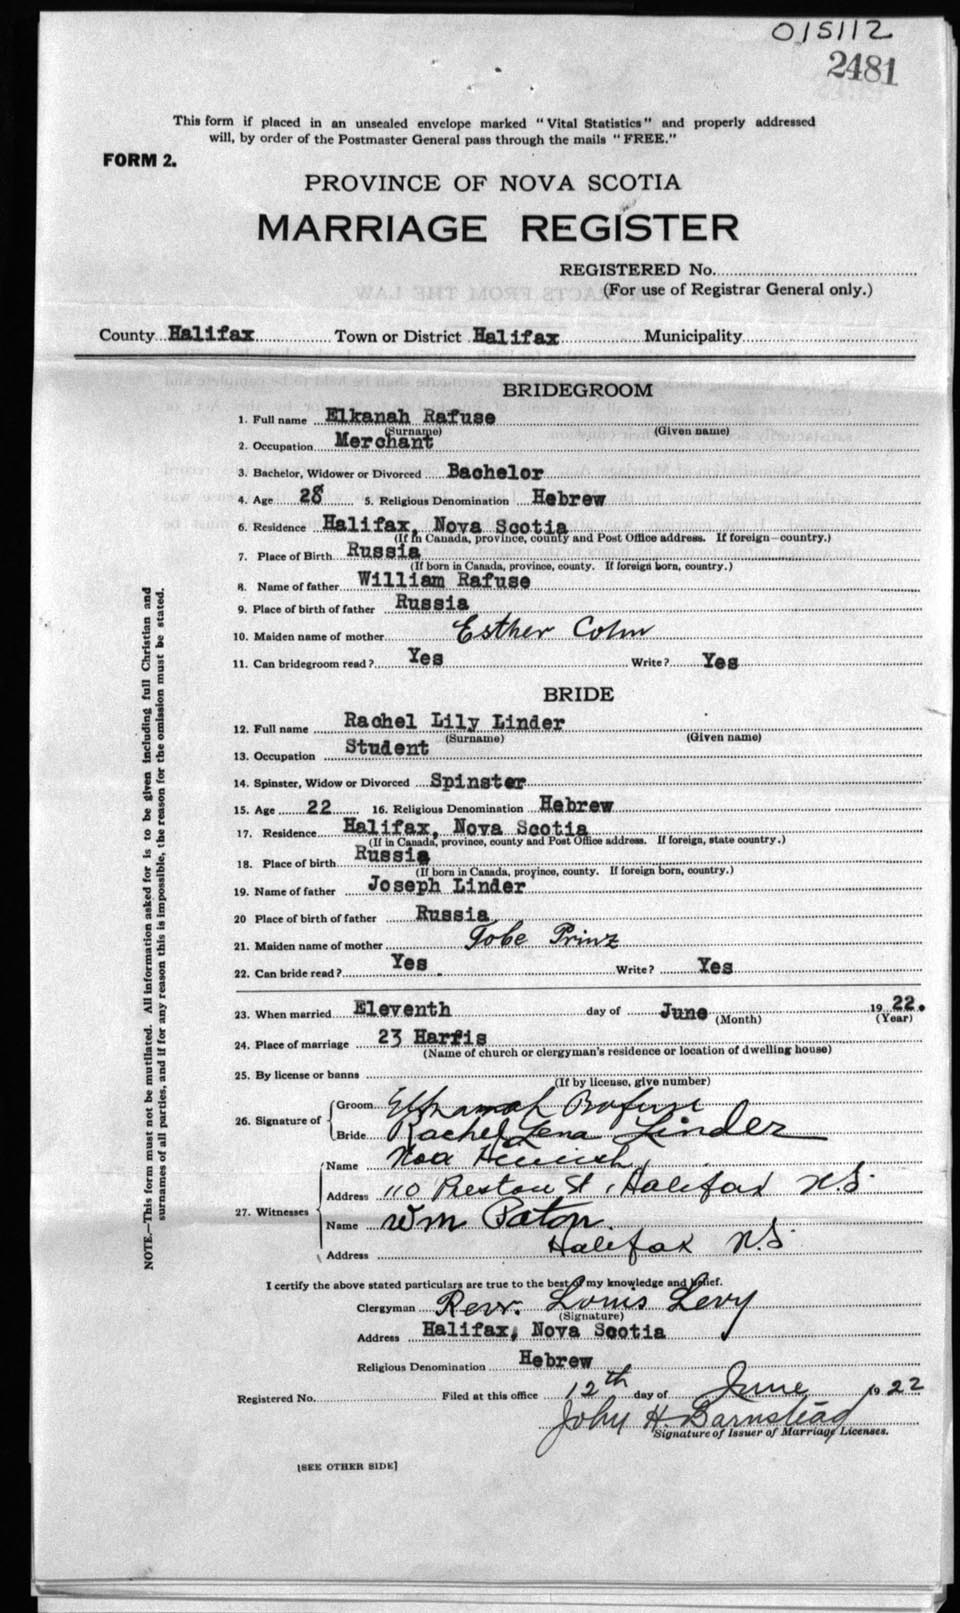 015112
2481
This form if placed in an unsealed envelope marked "Vital Statistics" and properly addressed
will, by order of the Postmaster General pass through the mails "FREE."
FORM 2.
PROVINCE OF NOVA SCOTIA
MARRIAGE REGISTER
REGISTERED No.
(For use of Registrar General only.)
County Halifax Town or District Halifax Municipality
BRIDEGROOM
1. Full name Elkanah Rafuse
(Surname) (Given name)
2. Occupation Merchant
3. Bachelor, Widower or Divorced Bachelor
4. Age 28 5. Religious Denomination Hebrew
6. Residence Halifax, Nova Scotia
(If in Canada, province, county and Post Office address. If foreign—country.)
7. Place of Birth Russia
(If born in Canada, province, county. If foreign born, country.)
8. Name of father William Rafuse
9. Place of birth of father Russia
10. Maiden name of mother Esther Cohn
11. Can bridegroom read? Yes Write? Yes
BRIDE
12. Full name Rachel Lily Linder
(Surname) (Given name)
13. Occupation Student
14. Spinster, Widow or Divorced Spinster
15. Age 22 16. Religious Denomination Hebrew
17. Residence Halifax, Nova Scotia
(If in Canada, province, county and Post Office address. If foreign, state country.)
18. Place of birth Russia
(If born in Canada, province, county. If foreign born, country.)
19. Name of father Joseph Linder
20 Place of birth of father Russia
21. Maiden name of mother Tobe Prinz
22. Can bride read? Yes Write? Yes
23. When married Eleventh day of June 1922.
(Month) (Year)
24. Place of marriage 23 Harris
(Name of church or clergyman's residence or location of dwelling house)
25. By license or banns
(If by license, give number)
26. Signature of Groom Elkanah Rafuse
Bride Rachel Lena Linder
27. Witnesses Name Noa
Address 110 Preston St, Halifax N.S.
Name Wm Paton.
Address Halifax N.S.
I certify the above stated particulars are true to the best of my knowledge and belief.
Clergyman Revr. Louis Levy
(Signature)
Address Halifax, Nova Scotia
Religious Denomination Hebrew
Registered No. Filed at this office 12th day of June 1922
John H. Barnstead
Signature of Issuer of Marriage Licenses.
[SEE OTHER SIDE]
NOTE.—This form must not be mutilated. All information asked for is to be given including full Christian and
surnames of all parties, and if for any reason this is impossible, the reason for the omission must be stated.